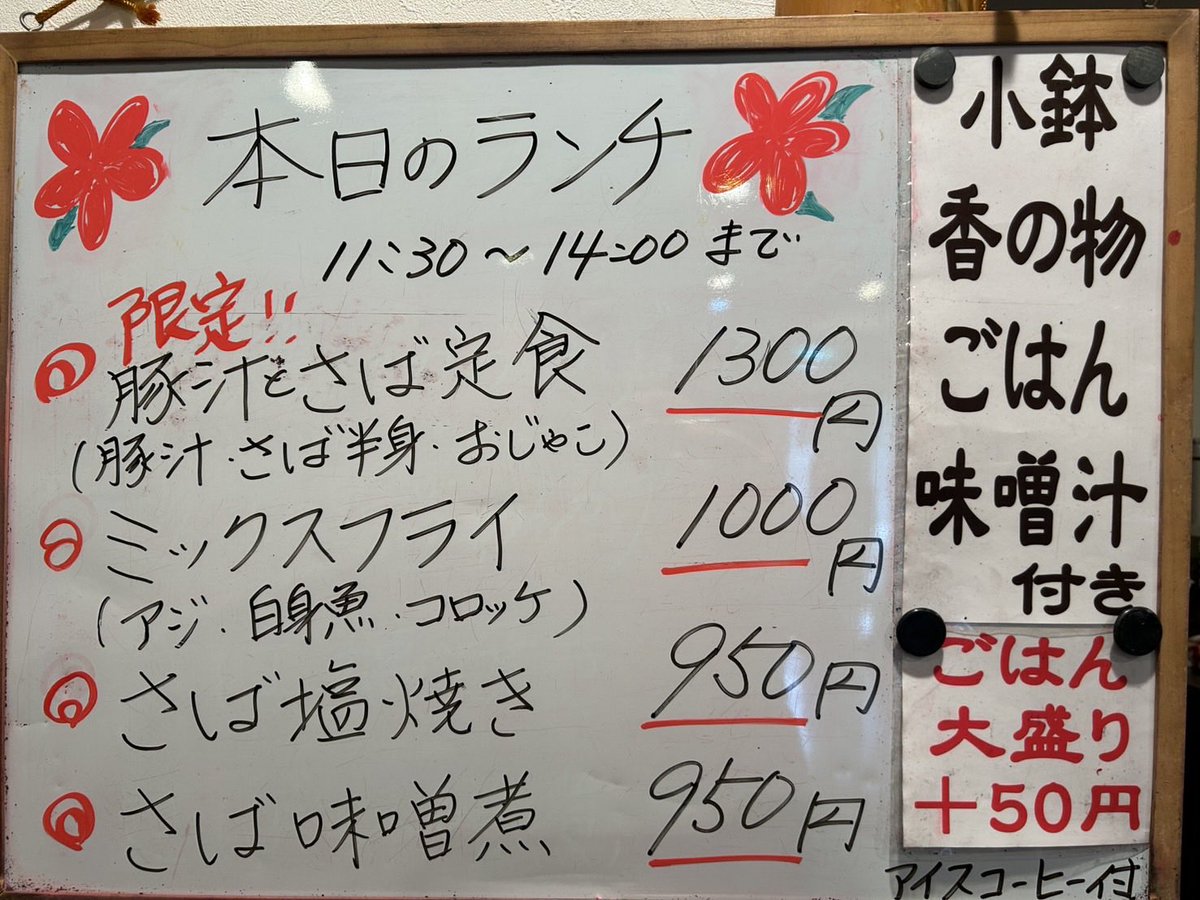 本日のランチ
11:30〜14:00まで
限定!!
豚汁とさば定食 1300円
(豚汁・さば半身・おじゃこ)
ミックスフライ 1000円
(アジ・白身魚・コロッケ)
さば塩焼き 950円
さば味噌煮 950円
小鉢
香の物
ごはん
味噌汁
付き
ごはん
大盛り
+50円
アイスコーヒー付